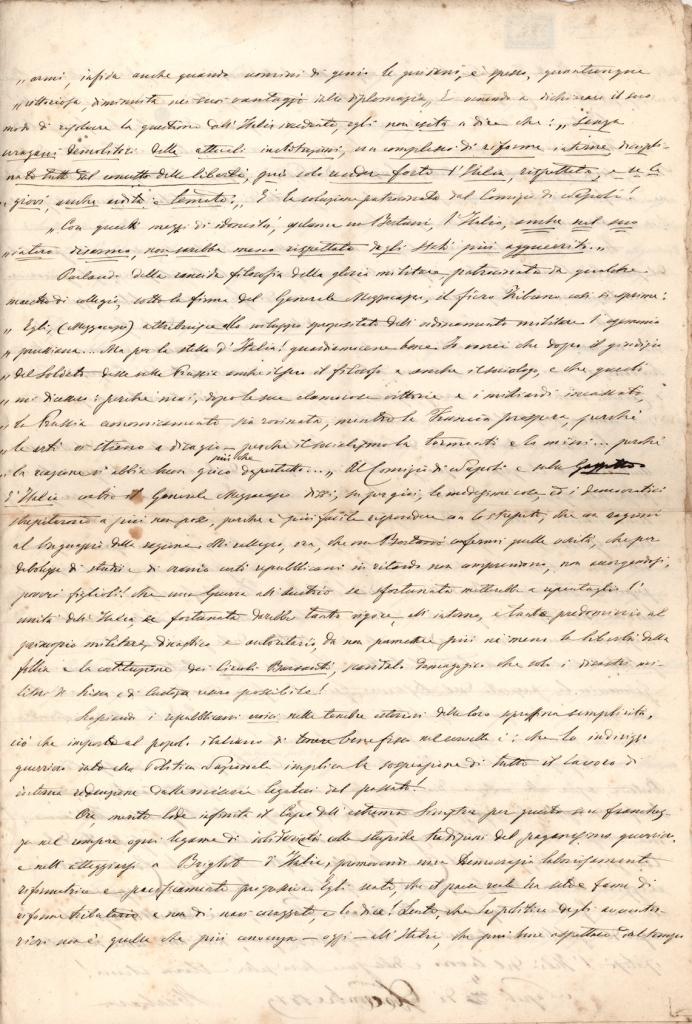 „armi, infida anche quando uomini di genio le guidano, è spesso, quantunque
„vittoriosa, diminuita nei suoi vantaggi dalla diplomazia„ E venendo a dichiarare il suo
modo di risolvere la questione dell'Italia irredenta, egli non esita a dire che: „Senza
uragani demolitori delle attuali instituzioni, un complesso di riforme interne discipli-
nate tutte dal concetto della libertà, può solo render forte l'Italia, rispettata, e se le
„giovi, anche ardita e temuta.„ È la soluzione patrocinata dal Comizio di Napoli!
„Con questi mezzi di idoneità, esclama un Bertani, l'Italia, anche nel suo
„intero disarmo, non sarebbe meno rispettata dagli Stati più agguerriti.„
Parlando della rancida filosofia della gloria militare patrocinata da qualche
maestro di collegio, sotto la firma del Generale Mezzacapo, il fiero Tribuno così si esprime:
„Egli, (Mezzacapo) attribuisce allo sviluppo progressitato dell'ordinamento militare l'egemonia
„prussiana... Ma per la stella d'Italia! guardiamocene bene. Io vorrei che dopo il giudizio
„del Soldato della colta Prussia anche il filosofo e anche il sociologo, e che questi
„mi dicesse: perchè mai, dopo le sue clamorose vittorie e i miliardi incassati,
„la Prussia economicamente sia rovinata, mentre la Francia prospera, perchè
„le arti vi stieno a disagio — perchè il socialismo la tormenti e la mini... perchè
„la reazione vi abbia buon gioco più che dapertutto...„ Al Comizio di Napoli e sulla Gazzetta
d'Italia contro il Generale Mezzacapo dissi, su per giù, le medesime cose, ed i democratici
strepitarono a più non posso, perchè è più facile rispondere con lo strepito, che con ragioni
al linguaggio della ragione. Mi rallegro, ora, che un Bertani confermi quelle verità, che per
debolezza di studi e di cranio certi repubblicani in ritardo non comprendono, non accorgendosi,
poveri figlioli! che una Guerra all'Austria se sfortunata metterebbe a repentaglio l'
unità dell'Italia, se fortunata darebbe tanto vigore, all'interno, e tanto predominio al
principio militare, dinastico e autoritario, da non permettere più nè meno la libertà della
folla e la costituzione dei Circoli Barsanti, scandalo demagogico che solo i disastri mi-
litari di Lissa e di Custoza resero possibile!
Lasciando i repubblicani nelle tenebre esteriori della loro sopraffina semplicità,
ciò che importa al popolo italiano di tenere bene fisso nel cervello è: che lo indirizzo
guerriero dato alla Politica Nazionale implica la sospensione di tutto il lavoro di
interna redenzione dalle miserie legateci dal passato!
Ora, merita lode infinita il Capo dell'estrema Sinistra per questa sua franchez-
za nel rompere ogni legame di solidarietà colle stupide tradizioni del paganesimo guerriero,
e nell'atteggiarsi a Bright d'Italia, promovendo una Democrazia laboriosamente
riformatrice e pacificamente progressiva. Egli sente, che il paese reale ha sete e fame di
riforme tributarie e non di navi corazzate, e lo dice! Sente, che la politica degli avventu-
rieri non è quella che più convenga — oggi — all'Italia, che può bene aspettare dal tempo